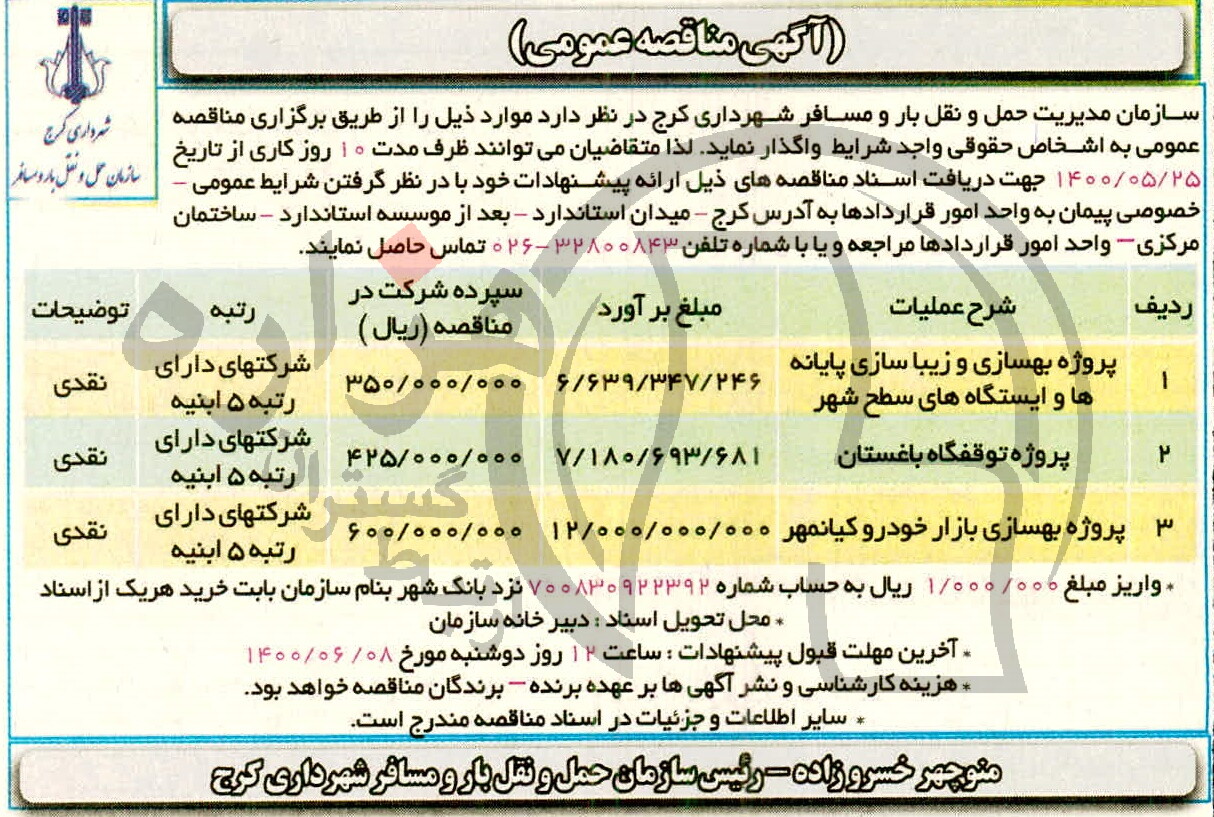 (آگهی مناقصه عمومی)
شهرداری کرج
سازمان حمل و نقل بار و مسافر
سازمان مدیریت حمل و نقل بار و مسافر شهرداری کرج در نظر دارد موارد ذیل را از طریق برگزاری مناقصه
عمومی به اشخاص حقوقی واجد شرایط واگذار نماید. لذا متقاضیان می توانند ظرف مدت ۱۰ روز کاری از تاریخ
۱۴۰۰/۰۵/۲۵ جهت دریافت اسناد مناقصه های ذیل ارائه پیشنهادات خود با در نظر گرفتن شرایط عمومی –
خصوصی پیمان به واحد امور قراردادها به آدرس کرج – میدان استاندارد – بعد از موسسه استاندارد – ساختمان
مرکزی – واحد امور قراردادها مراجعه و یا با شماره تلفن ۳۲۸۰۰۸۴۳-۰۲۶ تماس حاصل نمایند.
ردیف شرح عملیات مبلغ برآورد سپرده شرکت در مناقصه (ریال) رتبه توضیحات
۱ پروژه بهسازی و زیبا سازی پایانه ها و ایستگاه های سطح شهر ۶/۶۳۹/۳۴۷/۲۴۶ ۳۵۰/۰۰۰/۰۰۰ شرکتهای دارای رتبه ۵ ابنیه نقدی
۲ پروژه توقفگاه باغستان ۷/۱۸۰/۶۹۳/۶۸۱ ۴۲۵/۰۰۰/۰۰۰ شرکتهای دارای رتبه ۵ ابنیه نقدی
۳ پروژه بهسازی بازار خودرو کیانمهر ۱۲/۰۰۰/۰۰۰/۰۰۰ ۶۰۰/۰۰۰/۰۰۰ شرکتهای دارای رتبه ۵ ابنیه نقدی
* واریز مبلغ ۱/۰۰۰/۰۰۰ ریال به حساب شماره ۷۰۰۸۳۰۹۲۲۳۹۲ نزد بانک شهر بنام سازمان بابت خرید هریک از اسناد
* محل تحویل اسناد : دبیر خانه سازمان
* آخرین مهلت قبول پیشنهادات : ساعت ۱۲ روز دوشنبه مورخ ۱۴۰۰/۰۶/۰۸
* هزینه کارشناسی و نشر آگهی ها بر عهده برنده – برندگان مناقصه خواهد بود.
* سایر اطلاعات و جزئیات در اسناد مناقصه مندرج است.
منوچهر خسرو زاده – رئیس سازمان حمل و نقل بار و مسافر شهرداری کرج